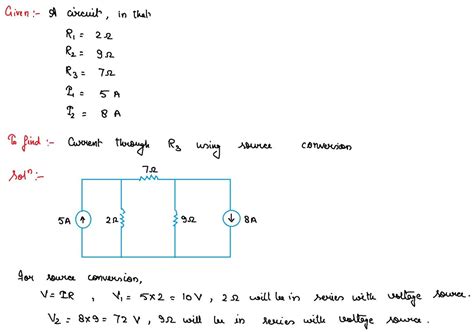 Given :- A circuit, in that
R₁ = 2Ω
R₂ = 9Ω
R₃ = 7Ω
I₁ = 5 A
I₂ = 8 A
To find :- Current through R₃ using source conversion
Solⁿ :-
7Ω
5A 2Ω 9Ω 8A
For source conversion,
V = IR , V₁ = 5×2 = 10 V , 2Ω will be in series with voltage source.
V₂ = 8×9 = 72 V , 9Ω will be in series with voltage source.